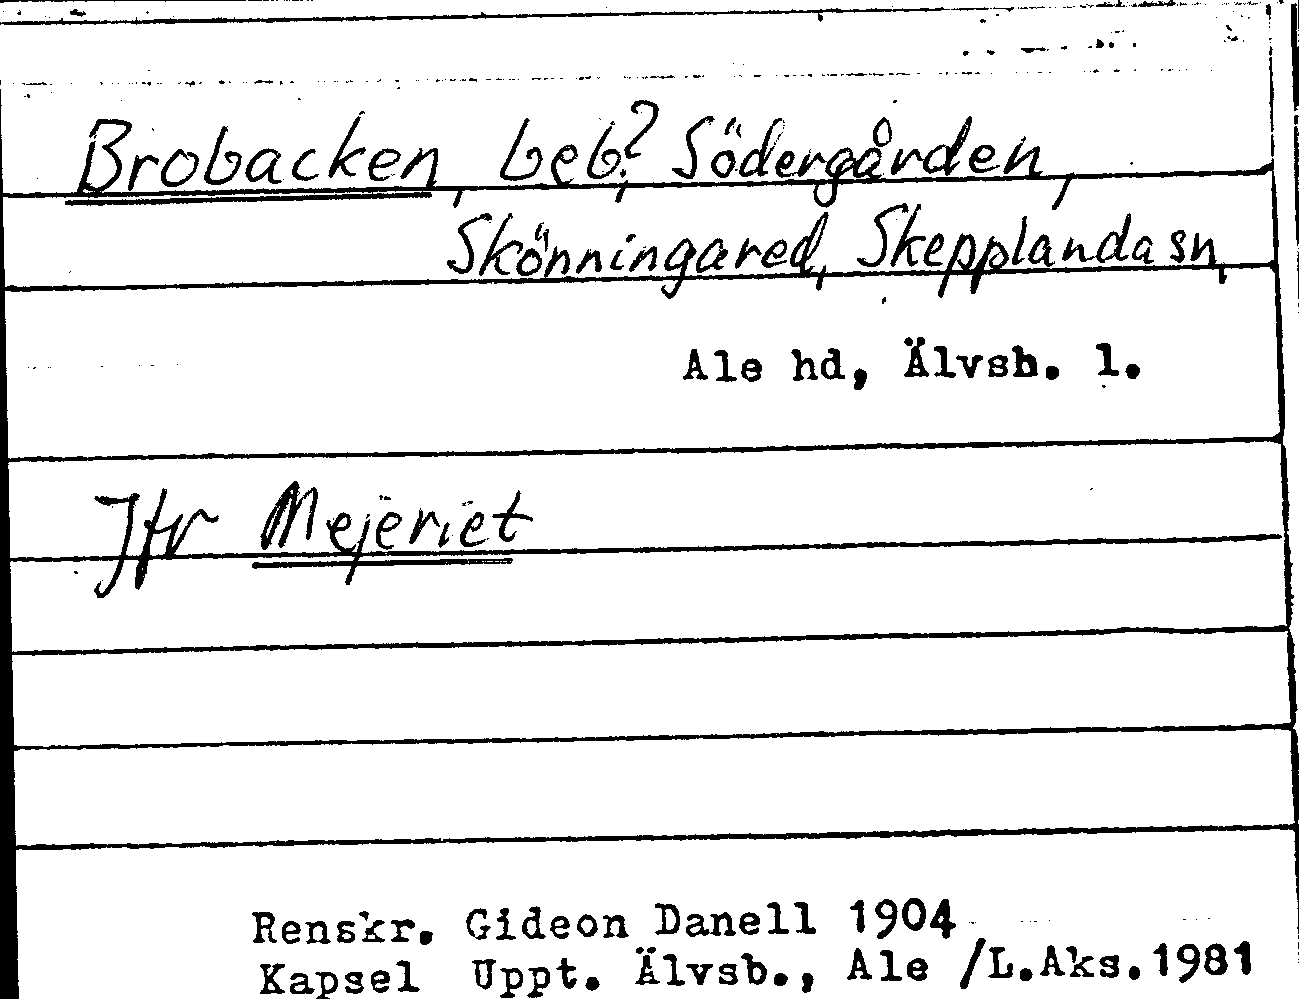 Brobacken, beb?, Södergården,
Skönningared, Skepplanda sn,
Ale hd, Älvsb. l.
Jfr Mejeriet
Renskr. Gideon Danell 1904
Kapsel Uppt. Älvsb., Ale /L.Aks.1981